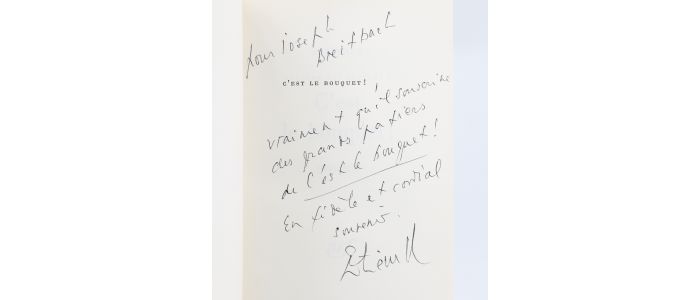 pour Joseph
Breitbach
C'EST LE BOUQUET!
vraiment qu'il souscrive
des grands papiers
de c'est le bouquet!
En fidèle et cordial
souvenir.
Etiemble